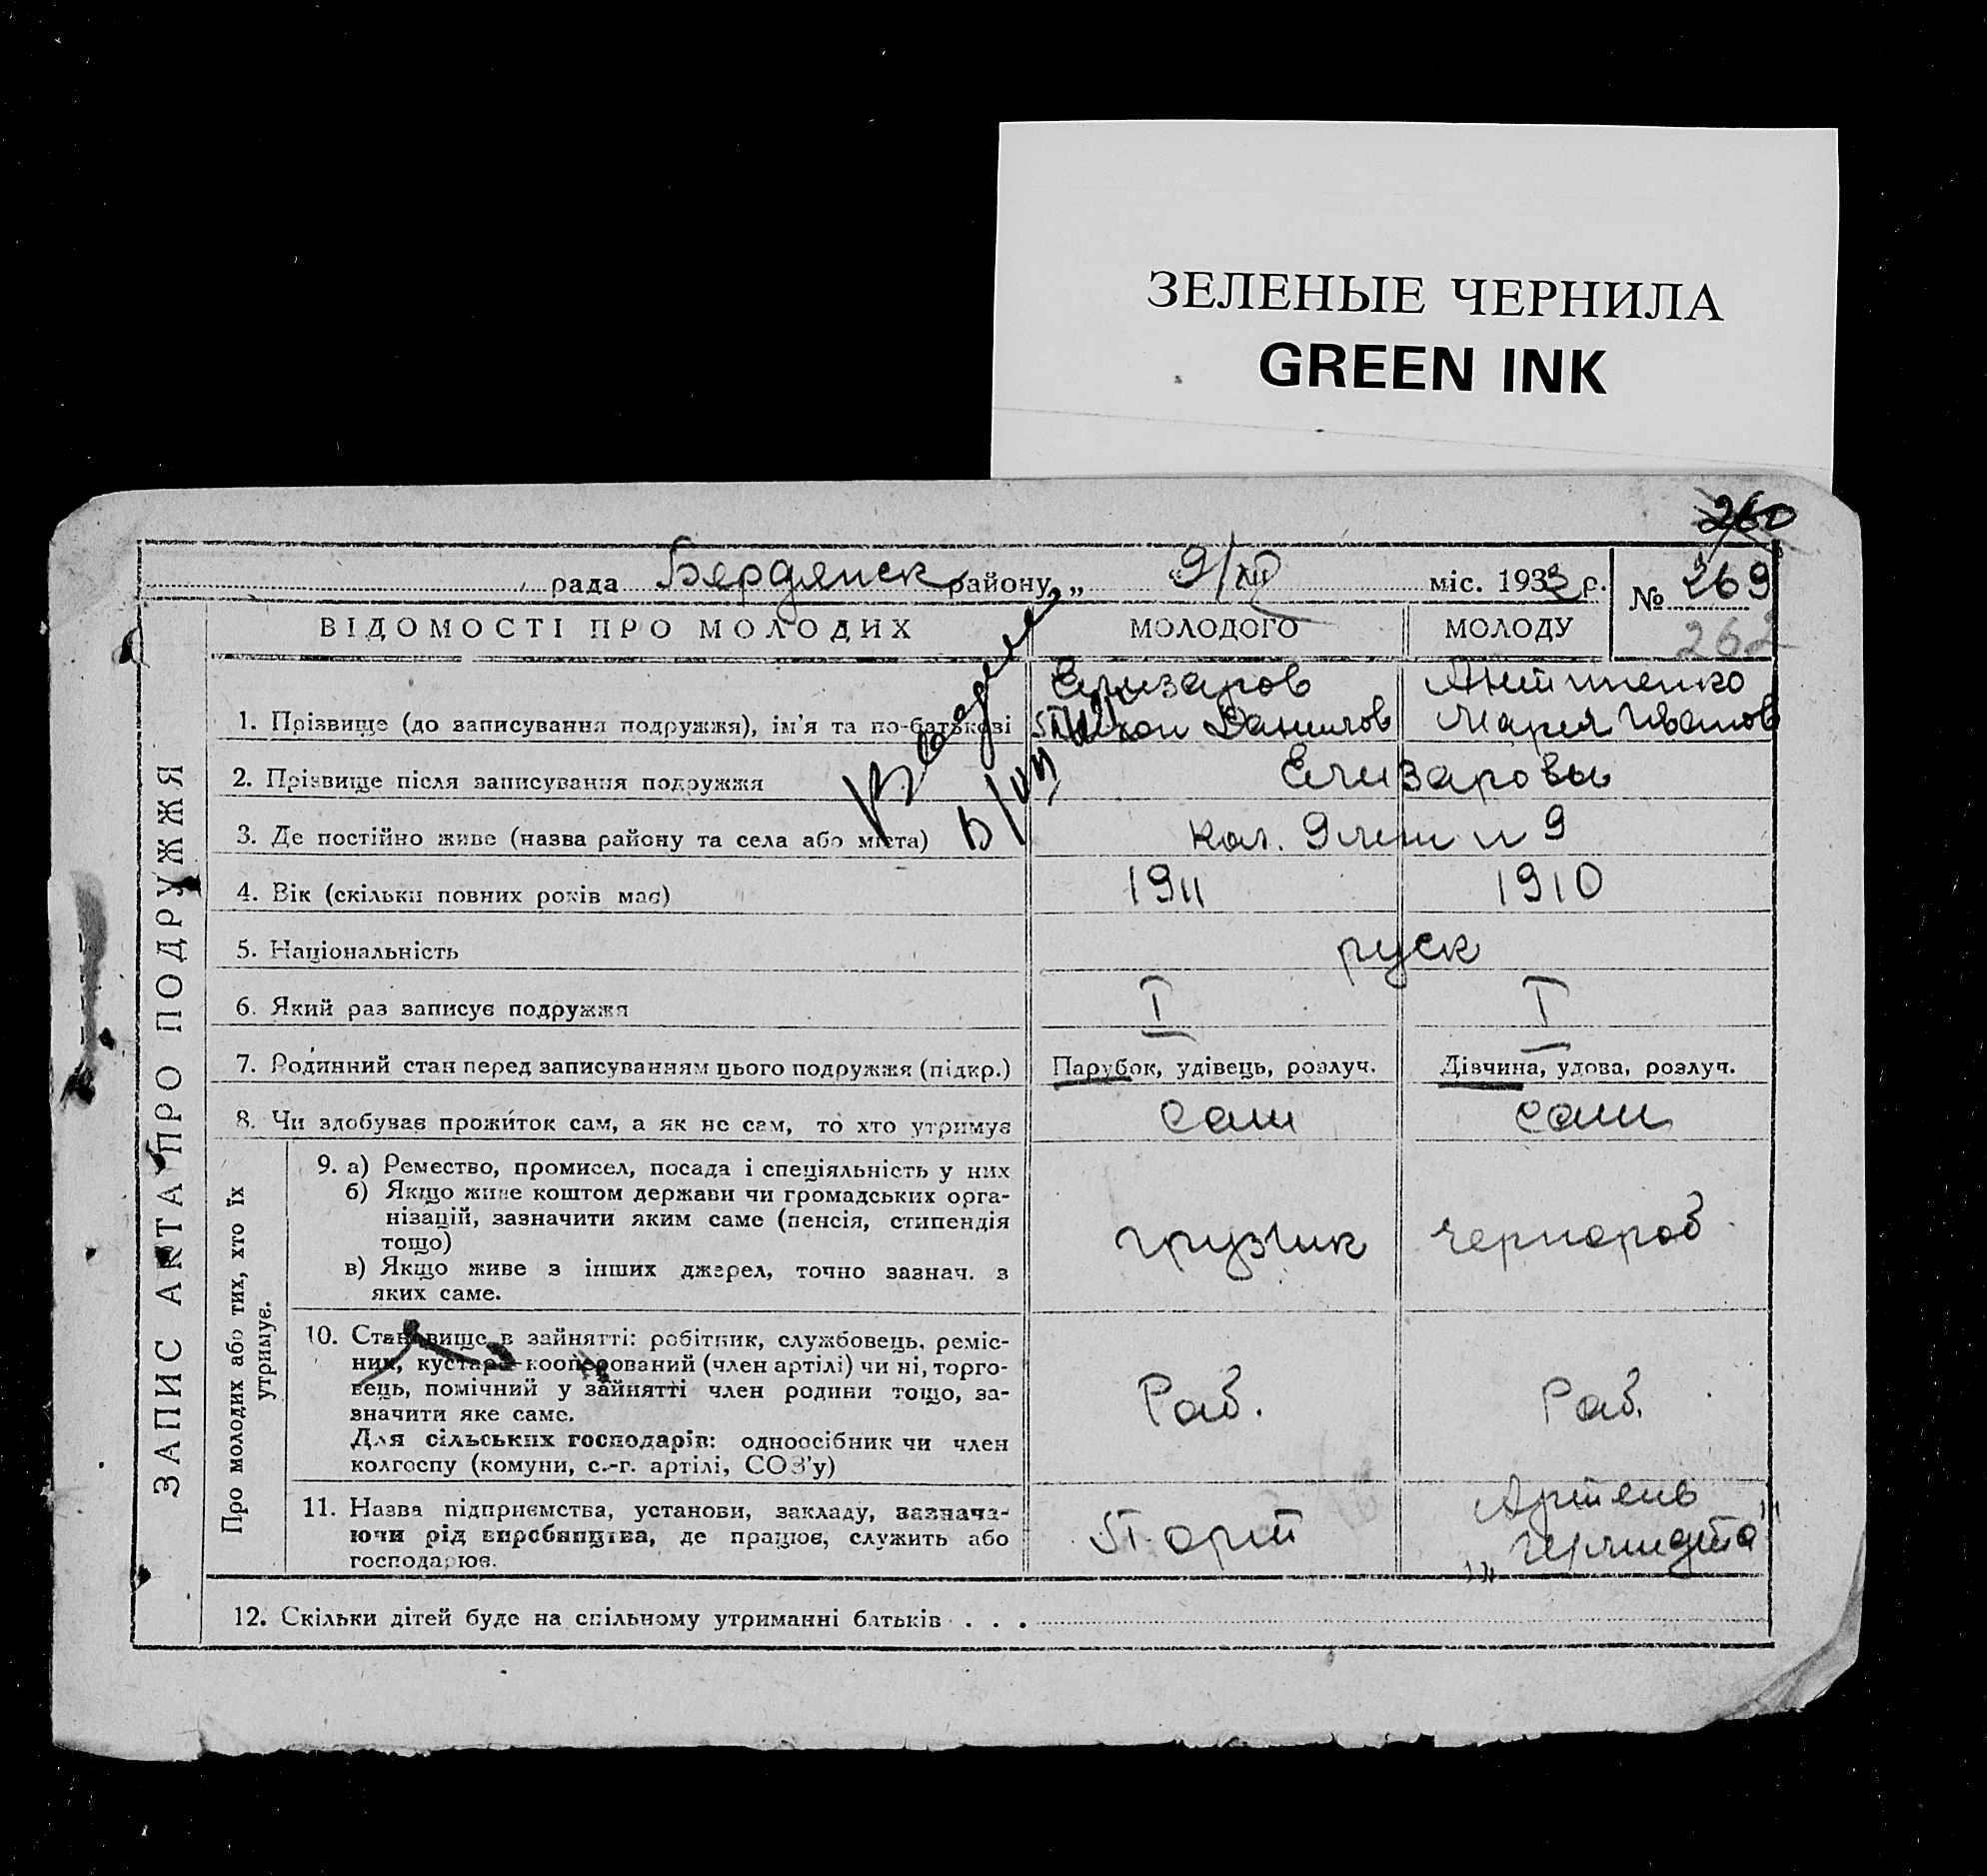 ЗЕЛЕНЫЕ ЧЕРНИЛА
GREEN INK
260
рада Бердянск району „ 9/XII міс. 1933 р.
№ 269
262
ЗАПИС АКТА ПРО ПОДРУЖЖЯ
ВІДОМОСТІ ПРО МОЛОДИХ МОЛОДОГО МОЛОДУ
Елизаров
1. Прізвище (до записування подружжя), ім'я та по-батькові Данилов Мария Иванов
2. Прізвище після записування подружжя Елизаровы
3. Де постійно живе (назва району та села або міста) 9
4. Вік (скільки повних років має) 1911 1910
5. Національність руск
6. Який раз записує подружжя I I
7. Родинний стан перед записуванням цього подружжя (підкр.) Парубок, удівець, розлуч. Дівчина, удова, розлуч.
8. Чи здобуває прожиток сам, а як не сам, то хто утримує сам сам
Про молодих або тих, хто їх
утримує.
9. а) Ремество, промисел, посада і спеціяльність у них
б) Якщо живе коштом держави чи громадських орга-
нізацій, зазначити яким саме (пенсія, стипендія
тощо) грузчик чернораб
в) Якщо живе з інших джерел, точно зазнач. з
яких саме.
10. Становище в зайнятті: робітник, службовець, реміс-
ник, кустарь-кооперований (член артілі) чи ні, торго-
вець, помічний у зайнятті член родини тощо, за-
значити яке саме. Раб. Раб.
Для сільських господарів: одноосібник чи член
колгоспу (комуни, с.-г. артілі, СОЗ'у)
Артель
11. Назва підприємства, установи, закладу, зазнача-
ючи рід виробництва, де працює, служить або порт
господарює.
12. Скільки дітей буде на спільному утриманні батьків . . .